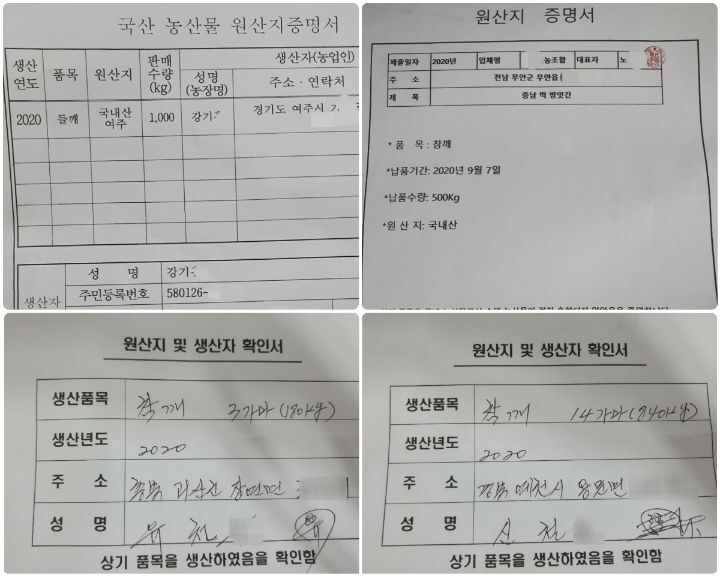 국산 농산물 원산지증명서
생산연도 품목 원산지 판매수량(kg) 생산자(농업인)
성명(농장명) 주소·연락처
2020 들깨 국내산 여주 1,000 강기 경기도 여주시
생산자 성 명 강기
주민등록번호 580126-
원산지 증명서
제출일자 2020년 업체명 농조합 대표자 노
주 소 전남 무안군 무안읍(
제 목 충남 떡 방앗간
* 품 목 : 참깨
*납품기간: 2020년 9월 7일
*납품수량: 500Kg
*원 산 지: 국내산
원산지 및 생산자 확인서
생산품목 참깨 3가마(180
생산년도 2020
주 소 충북 괴산군
성 명
상기 품목을 생산하였음을 확인함
원산지 및 생산자 확인서
생산품목 참깨 14가마(840
생산년도 2020
주 소 경북 예천시
성 명 신
상기 품목을 생산하였음을 확인함